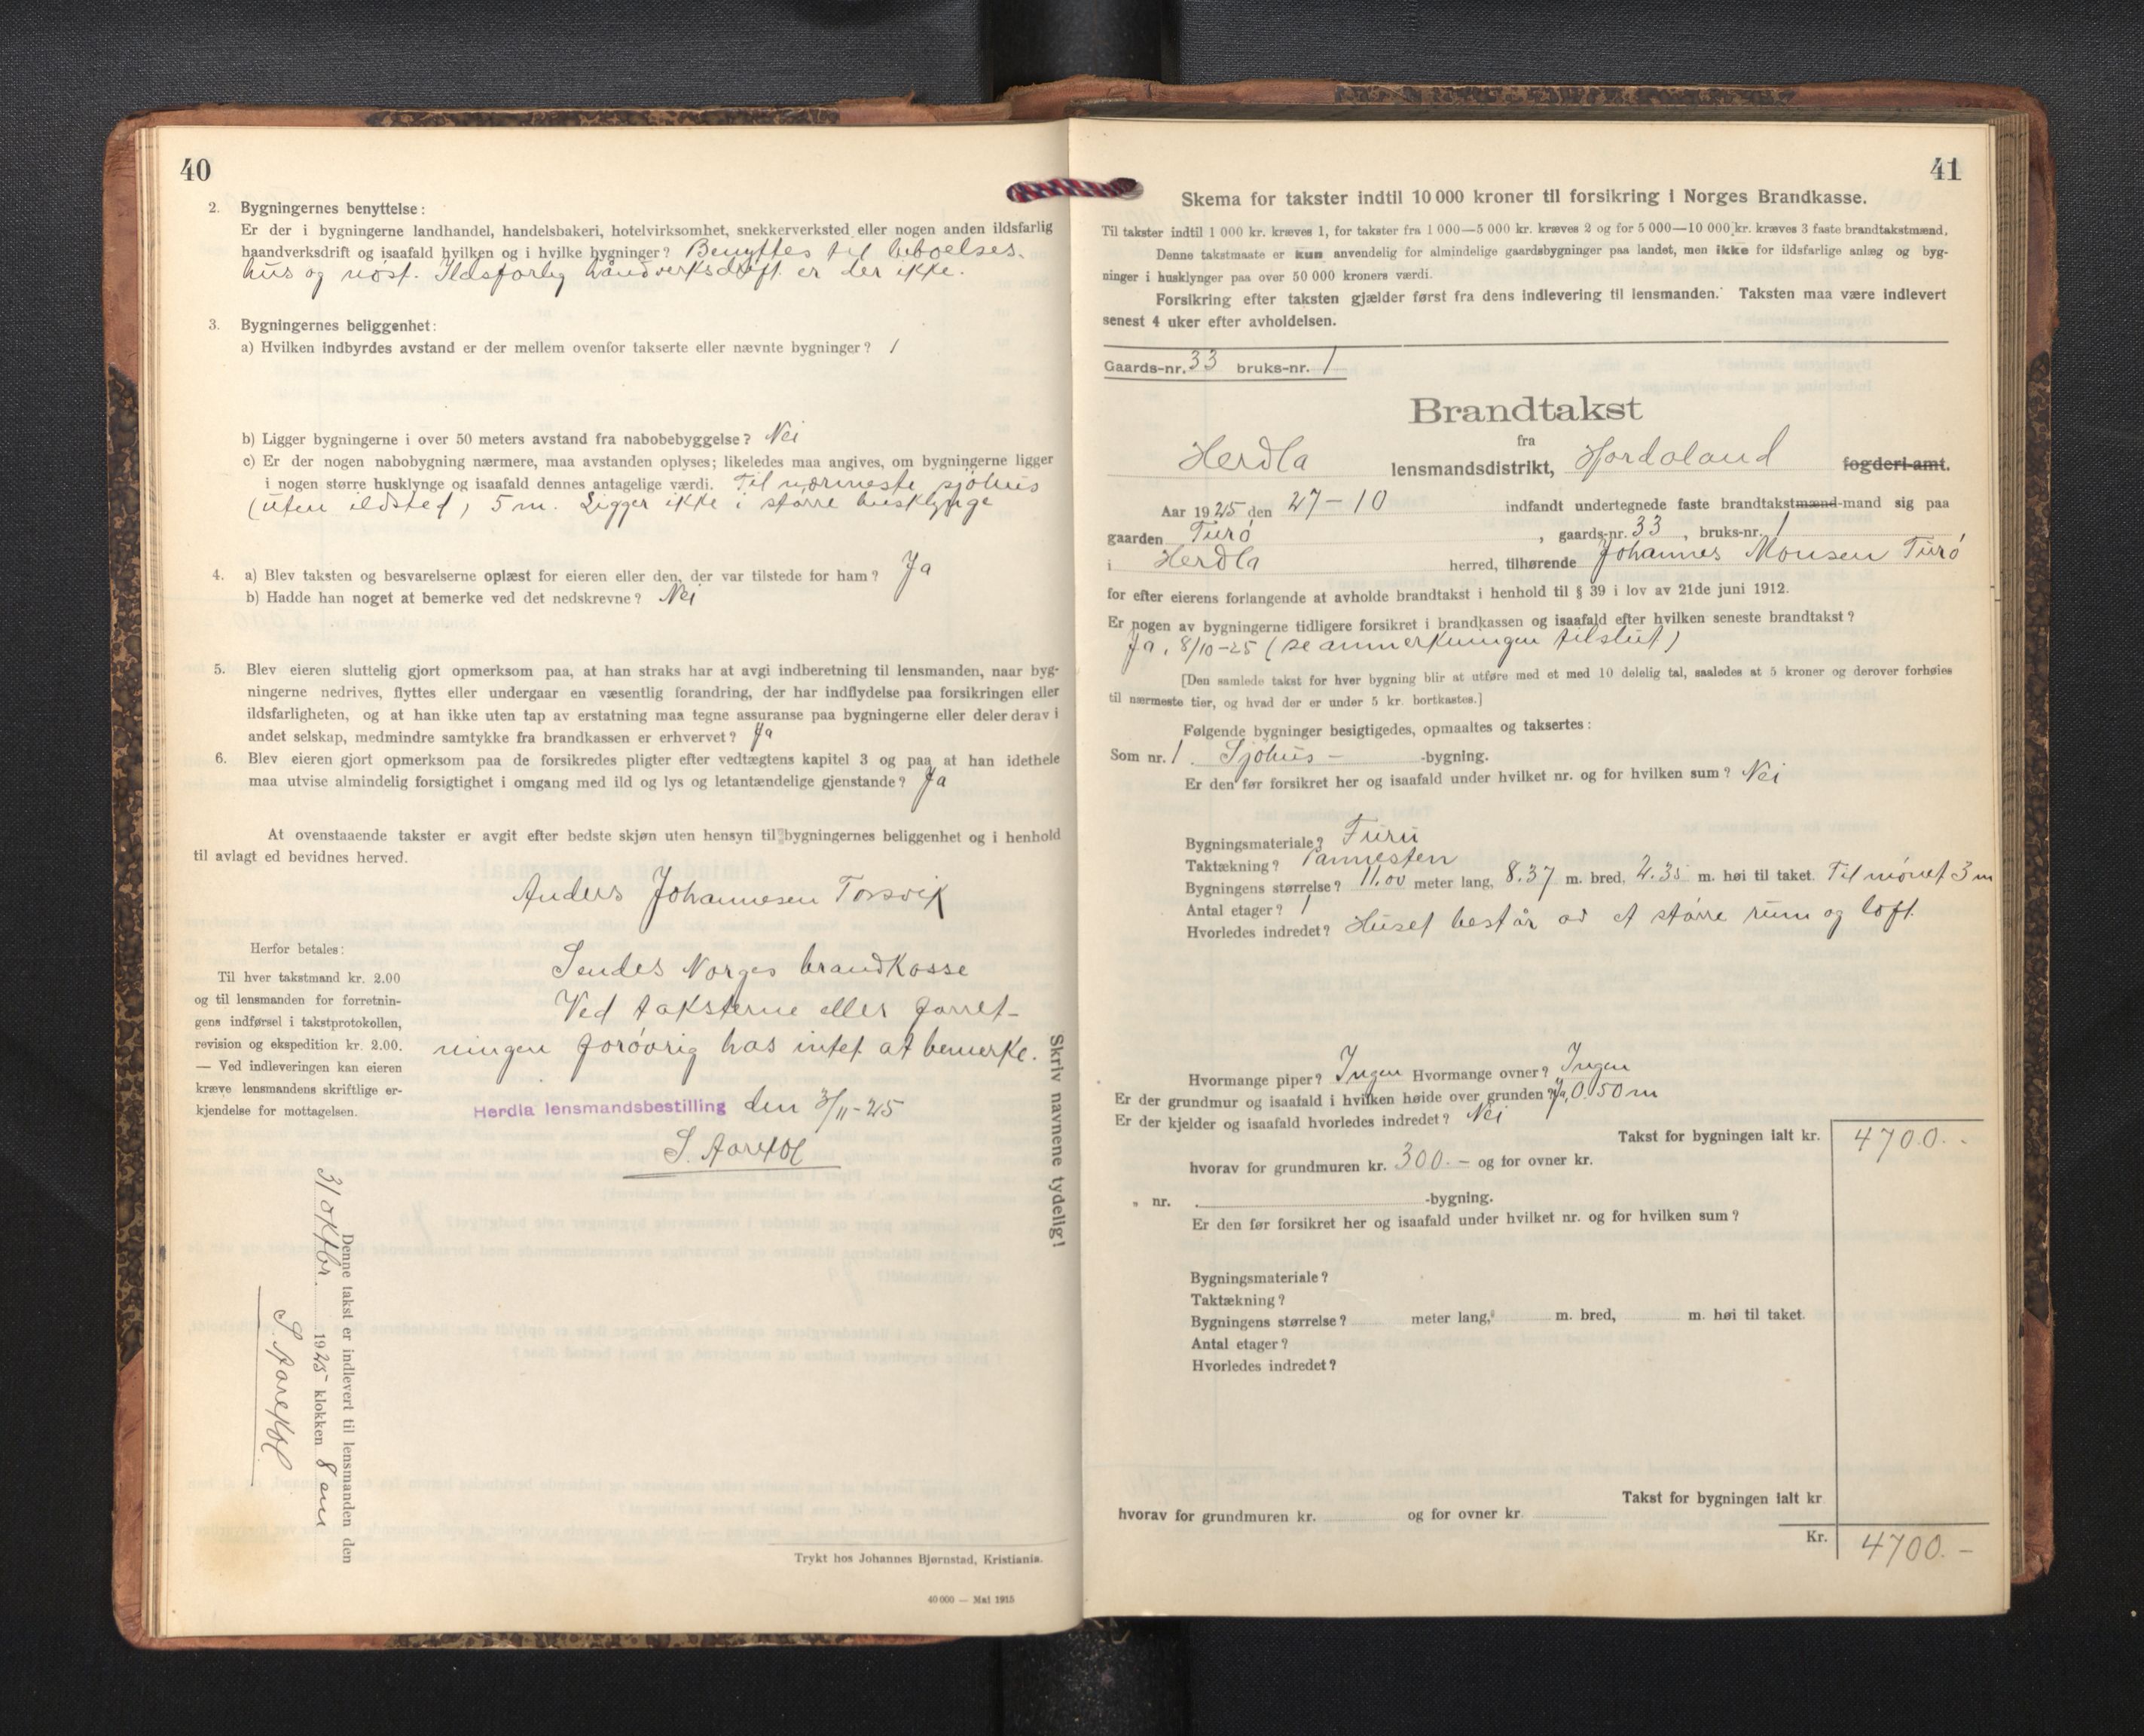 40
2. Bygningernes benyttelse:
Er der i bygningerne landhandel, handelsbakeri, hotelvirksomhet, snekkerverksted eller nogen anden ildsfarlig
haandverksdrift og isaafald hvilken og i hvilke bygninger? Benyttes til beboelses-
hus og nøst. Ildsfarlig håndverksdrift er der ikke.
3. Bygningernes beliggenhet:
a) Hvilken indbyrdes avstand er der mellem ovenfor takserte eller nævnte bygninger? /
b) Ligger bygningerne i over 50 meters avstand fra nabobebyggelse? Nei
c) Er der nogen nabobygning nærmere, maa avstanden oplyses; likeledes maa angives, om bygningerne ligger
i nogen større husklynge og isaafald dennes antagelige værdi. Til nærmeste sjøhus
(uten ildsted) 5 m. Ligger ikke i større husklynge
4. a) Blev taksten og besvarelserne oplæst for eieren eller den, der var tilstede for ham? Ja
b) Hadde han noget at bemerke ved det nedskrevne? Nei
5. Blev eieren sluttelig gjort opmerksom paa, at han straks har at avgi indberetning til lensmanden, naar byg-
ningerne nedrives, flyttes eller undergaar en væsentlig forandring, der har indflydelse paa forsikringen eller
ildsfarligheten, og at han ikke uten tap av erstatning maa tegne assuranse paa bygningerne eller deler derav i
andet selskap, medmindre samtykke fra brandkassen er erhvervet? Ja
6. Blev eieren gjort opmerksom paa de forsikredes pligter efter vedtægtens kapitel 3 og paa at han idethele
maa utvise almindelig forsigtighet i omgang med ild og lys og letantændelige gjenstande? Ja
At ovenstaaende takster er avgit efter bedste skjøn uten hensyn til bygningernes beliggenhet og i henhold
til avlagt ed bevidnes herved.
Anders Johannesen Torsvik
Herfor betales:
Til hver takstmand kr. 2.00
og til lensmanden for forretnin-
gens indførsel i takstprotokollen,
revision og ekspedition kr. 2.00.
— Ved indleveringen kan eieren
kræve lensmandens skriftlige er-
kjendelse for mottagelsen.
Sendes Norges brandkasse
Ved taksterne eller forret-
ningen forøvrig has intet at bemerke.
Herdla lensmandsbestilling den 3/11-25
Skriv navnene tydelig!
Denne takst er indlevert til lensmanden den
31 oktbr. 1925 klokken 8 em
Trykt hos Johannes Bjørnstad, Kristiania.
40 000 — Mai 1915
41
Skema for takster indtil 10 000 kroner til forsikring i Norges Brandkasse.
Til takster indtil 1 000 kr. kræves 1, for takster fra 1 000—5 000 kr. kræves 2 og for 5 000—10 000 kr. kræves 3 faste brandtakstmænd.
Denne takstmaate er kun anvendelig for almindelige gaardsbygninger paa landet, men ikke for ildsfarlige anlæg og byg-
ninger i husklynger paa over 50 000 kroners værdi.
Forsikring efter taksten gjælder først fra dens indlevering til lensmanden. Taksten maa være indlevert
senest 4 uker efter avholdelsen.
Gaards-nr. 33 bruks-nr. 1
Brandtakst
fra
Herdla lensmandsdistrikt, Hordaland fogderi-amt.
Aar 1925 den 27-10 indfandt undertegnede faste brandtakstmænd-mand sig paa
gaarden Turø, gaards-nr. 33, bruks-nr. 1
i Herdla herred, tilhørende Johannes Monsen Turø
for efter eierens forlangende at avholde brandtakst i henhold til § 39 i lov av 21de juni 1912.
Er nogen av bygningerne tidligere forsikret i brandkassen og isaafald efter hvilken seneste brandtakst?
Ja, 8/10-25 (se anmerkningen tilslut)
[Den samlede takst for hver bygning blir at utføre med et med 10 delelig tal, saaledes at 5 kroner og derover forhøies
til nærmeste tier, og hvad der er under 5 kr. bortkastes.]
Følgende bygninger besigtigedes, opmaaltes og taksertes:
Som nr. 1. Sjøhus- -bygning.
Er den før forsikret her og isaafald under hvilket nr. og for hvilken sum? Nei
Bygningsmateriale? Furu
Taktækning? Pannesten
Bygningens størrelse? 11.00 meter lang, 8.37 m. bred, 2.35 m. høi til taket. Til mønet 3 m
Antal etager? 1
Hvorledes indredet? Huset består av et større rum og loft.
Hvormange piper? Ingen Hvormange ovner? Ingen
Er der grundmur og isaafald i hvilken høide over grunden? Ja, 0.50 m
Er der kjelder og isaafald hvorledes indredet? Nei
Takst for bygningen ialt kr. 4700.-
hvorav for grundmuren kr. 300.- og for ovner kr.
„ nr. -bygning.
Er den før forsikret her og isaafald under hvilket nr. og for hvilken sum?
Bygningsmateriale?
Taktækning?
Bygningens størrelse? meter lang, m. bred, m. høi til taket.
Antal etager?
Hvorledes indredet?
Takst for bygningen ialt kr
hvorav for grundmuren kr. og for ovner kr.
Kr. 4700.-